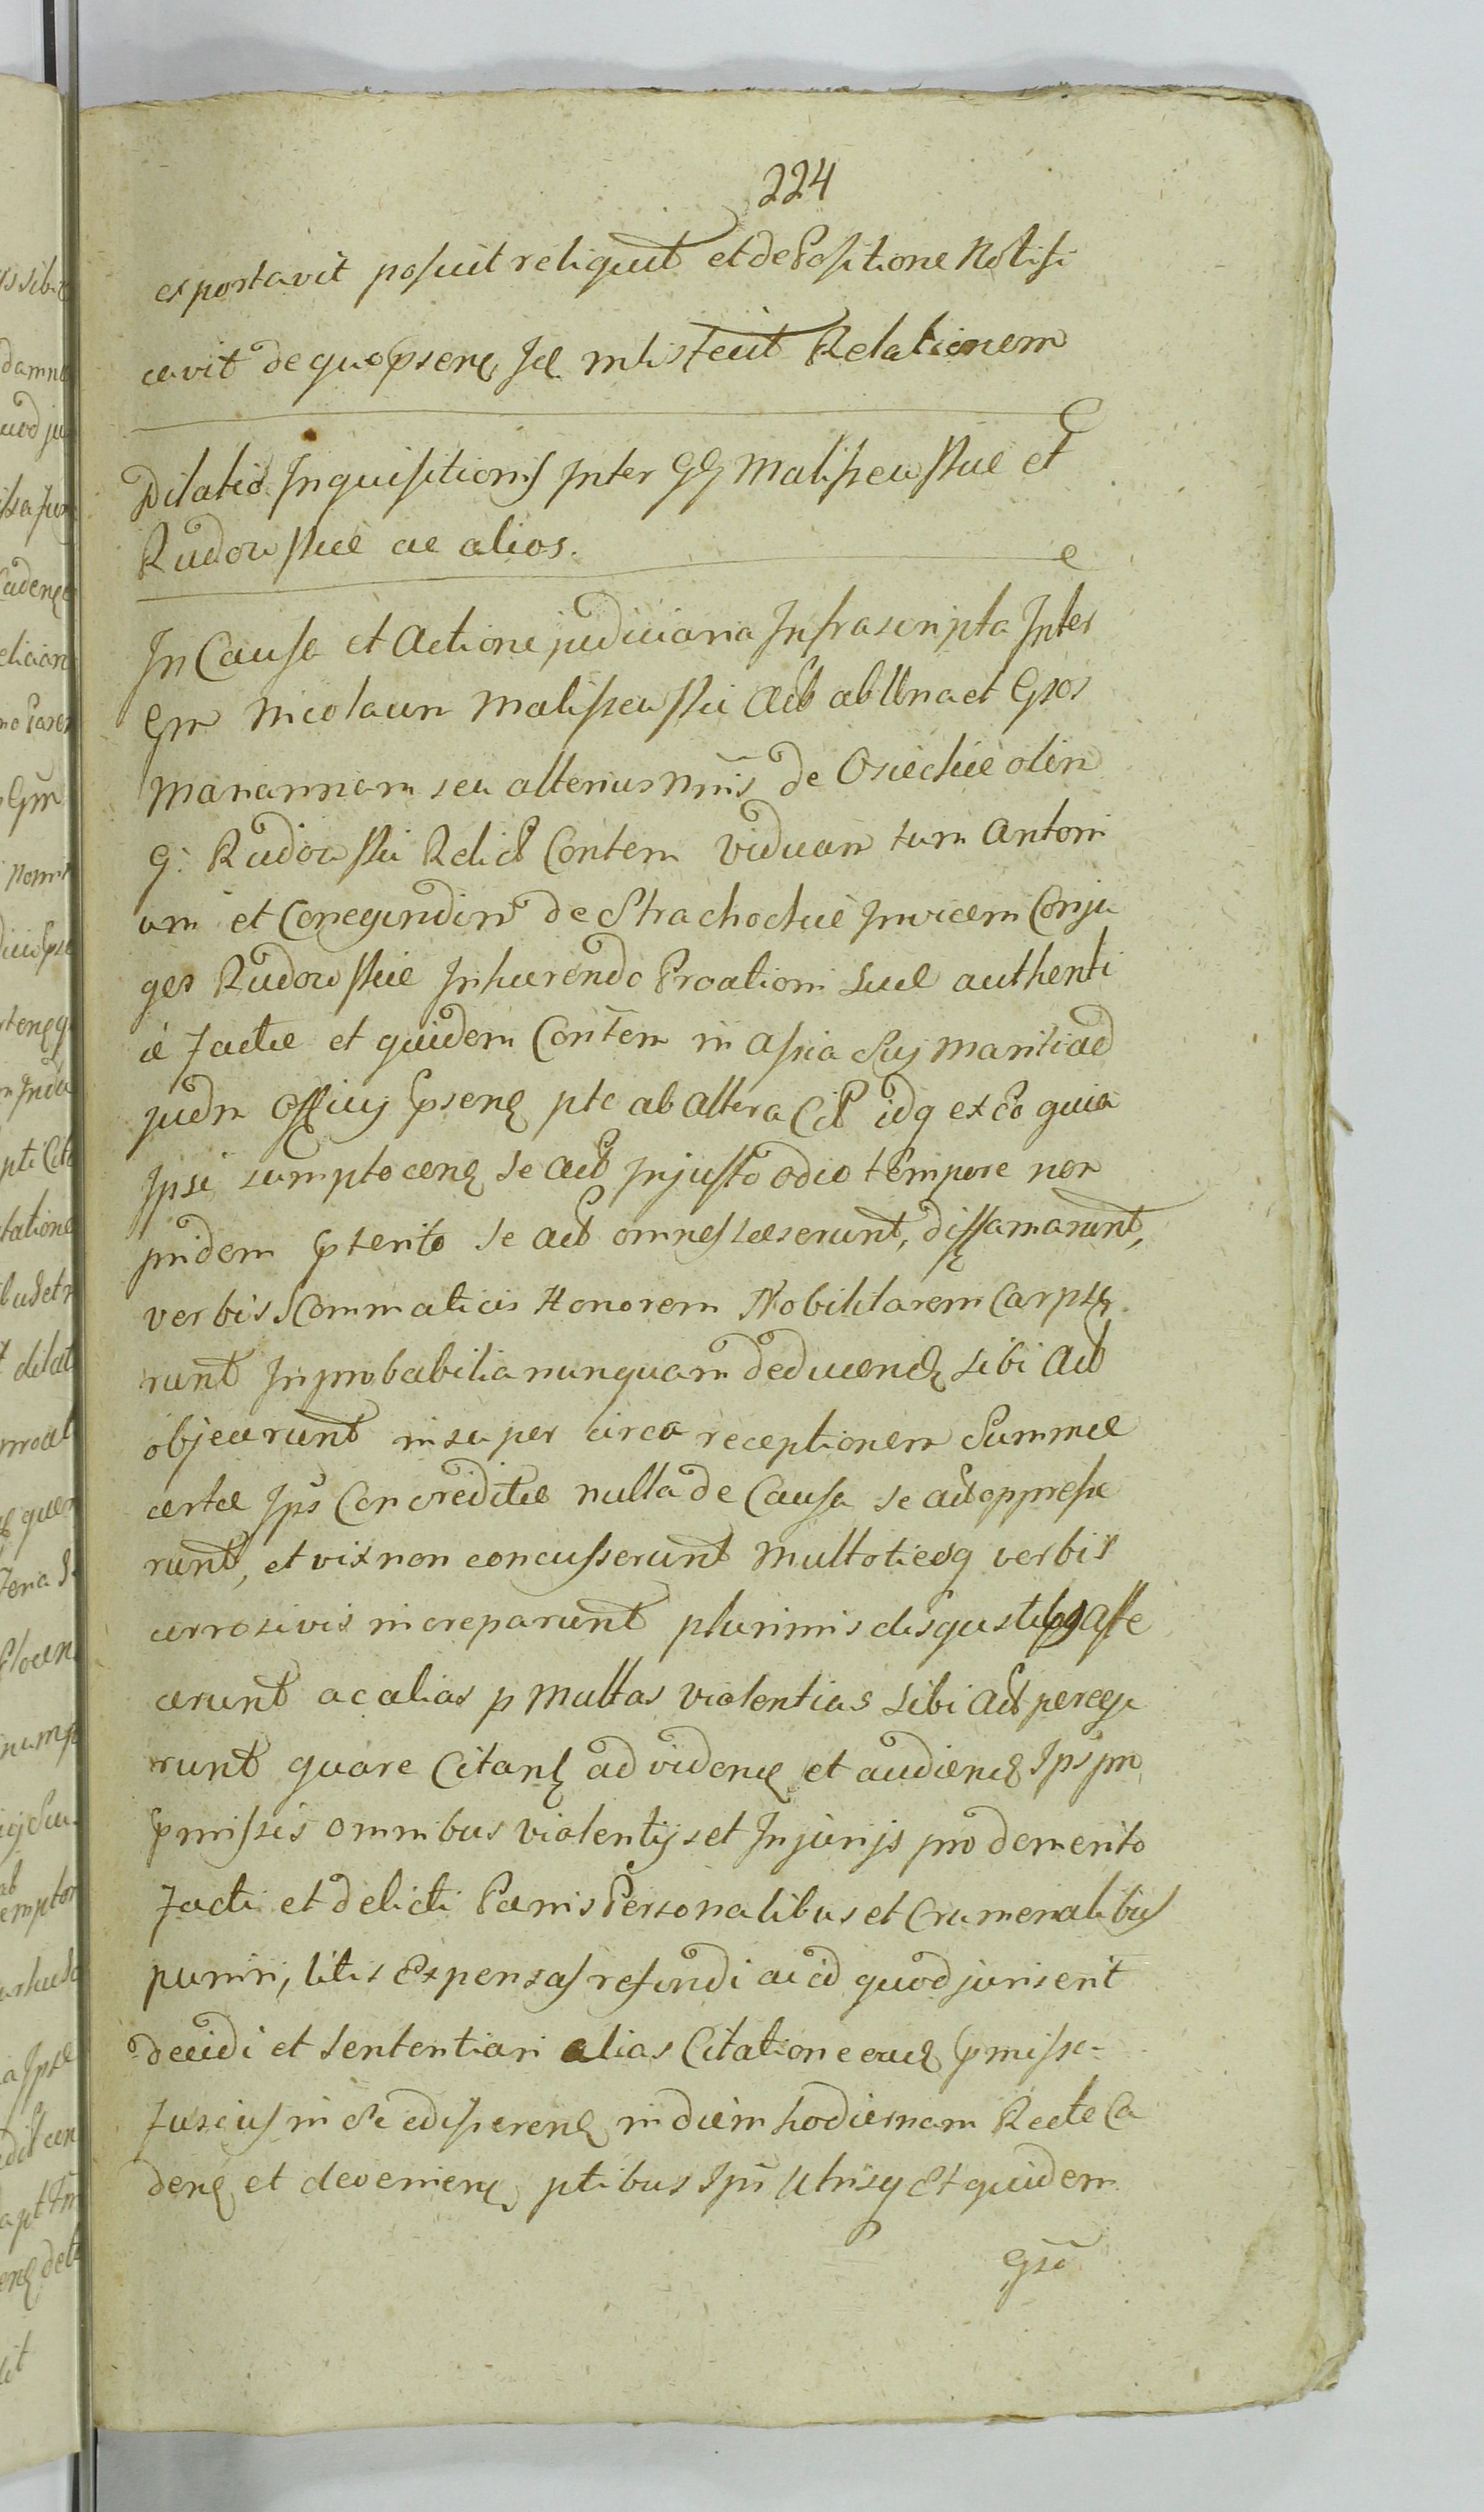 224
exportavit posuit reliquit et de Positione Notifi
cavit de quo psenq Jq mlis fecit Relationem
Dilatio Inquisitionis Inter GG Maliszewskie et
Rudowskie ac alios.
In Causa et Actione judiciaria Infrascripta Inter
Gm Nicolaum Maliszewski Actb ab Una et Gsos
Mariannam seu alterius Nmis de Osieckie olim
G: Rudowski Relict Contem Viduam tum Antoni
um et Conegundim de Strachockie Invicem Conju
ges Rudowskie Inhaerendo Proationi suae authenti
ce Factae et quidem Contem in assia Suj Mariti ad
judm Officij Psenq pte ab altera Cit idq ex Eo quia
Ipsi sumpto cerq se Actb Injusto odio tempore non
pridem Pterito se Actb omnes laeserunt, diffamarunt,
verbis Scommaticis Honorem Nobilitarem Carpse
runt Inprobabilia nunquam deducenq sibi Actb
objecerunt insuper circa receptionem Summae
certae Ips Concreditae nulla de Causa se actb oppresse
runt, et vix non concusserunt Multotiesq verbis
corrosivis increparunt plurimis disgustibq affe
cerunt ac alias p Multas Violentias sibi Actb perege
runt quare Citantq ad videnq et audienq Ips pro
Pmissis omnibus Violentijs et Injurijs pro demerito
Facti et delicti Paenis Personalibus et Crumenalibus
puniri, litis Expensas refundi ac id quod juris erit
decidi et Sententiari alias Citatione eacq Pmisso
Fusius in Se edisserenq in diem hodiernam Recte Ca
denq et devenienq ptibus Ipis Utrisq Et quidem
Gso